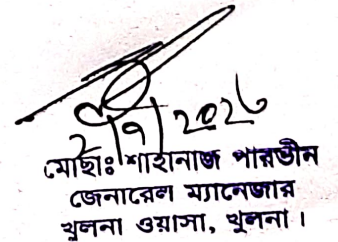 2/7/2026
মোছাঃ শাহানাজ পারভীন
জেনারেল ম্যানেজার
খুলনা ওয়াসা, খুলনা।